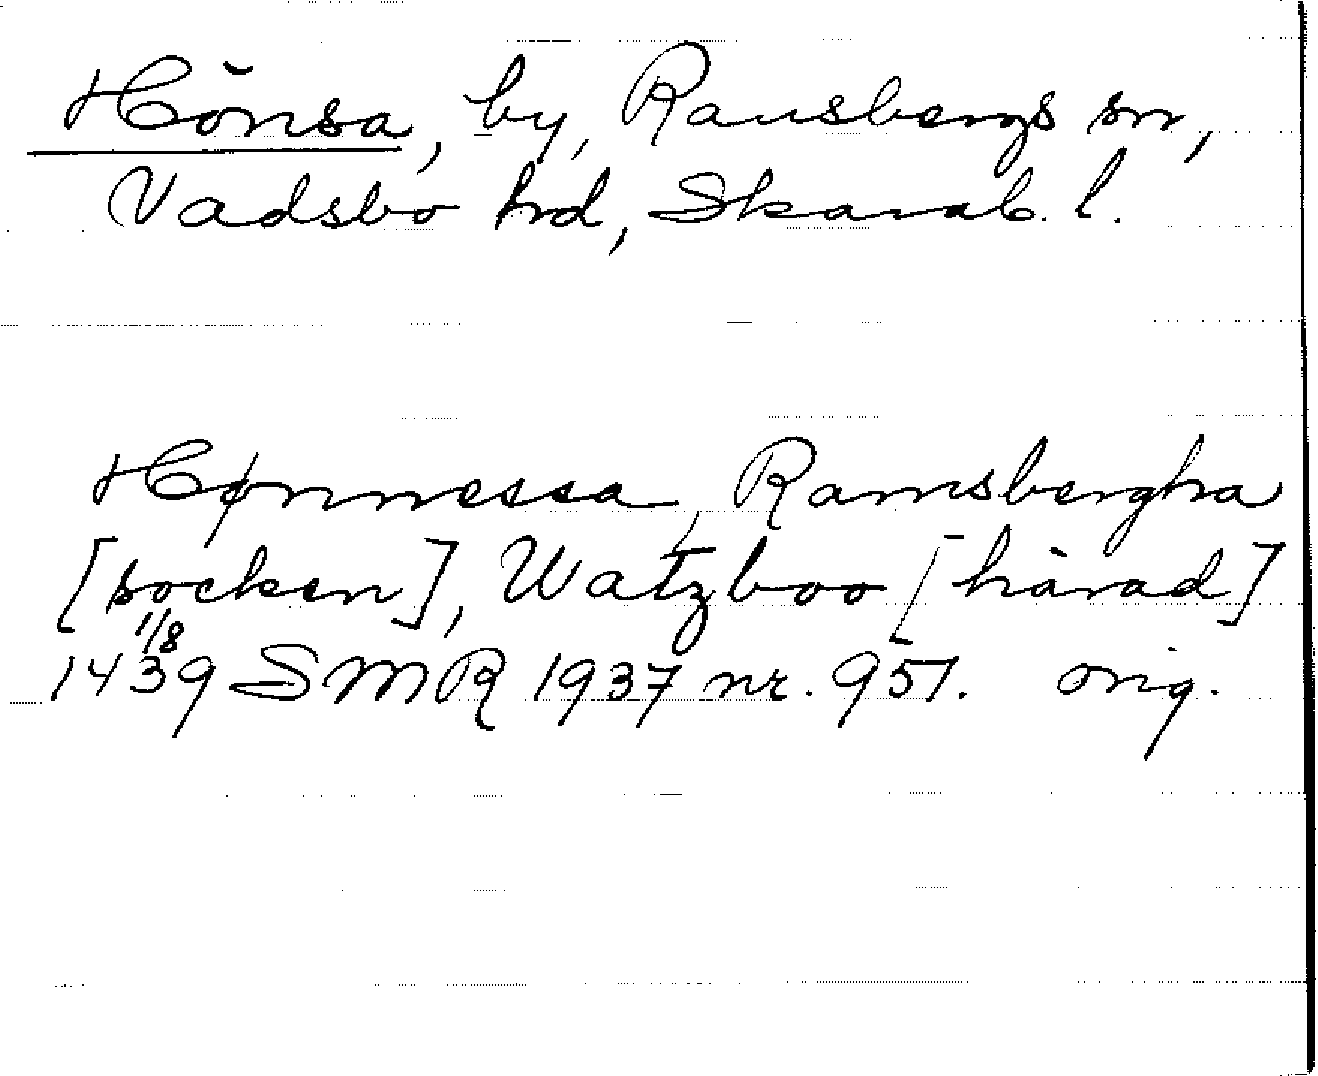 Hönsa, by, Ransbergs sn,
Vadsbo hd, Skarab. l.
Hønnessa, Ramsbergha
[socken], Watzboo [härad]
1/8
1439 SMR 1937 nr. 951. orig.